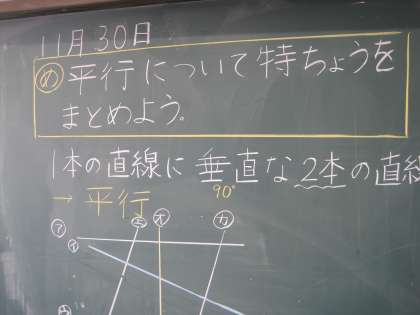 11月30日
め 平行について特ちょうを
まとめよう。
1本の直線に 垂直な 2本の直線
→ 平行 90°
ア エ オ カ
イ